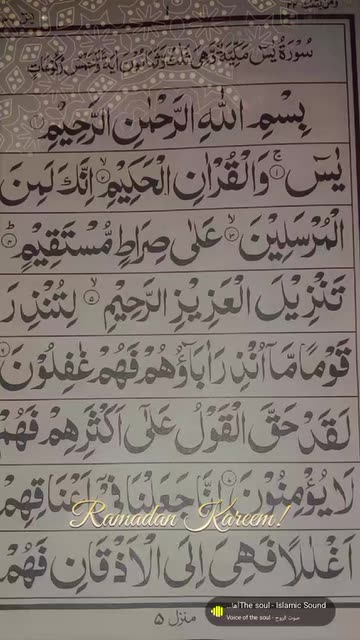 سُوْرَةُ يٰسٓ مَكِّيَّةٌ وَّهِيَ ثَلٰثٌ وَّثَمَانُوْنَ اٰيَةً وَّخَمْسُ رُكُوْعَاتٍ
بِسْمِ اللهِ الرَّحْمٰنِ الرَّحِيْمِ
يٰسٓ ۚ﴿۱﴾ وَالْقُرْاٰنِ الْحَكِيْمِ ۙ﴿۲﴾ اِنَّكَ لَمِنَ
الْمُرْسَلِيْنَ ۙ﴿۳﴾ عَلٰى صِرَاطٍ مُّسْتَقِيْمٍ ؕ﴿۴﴾
تَنْزِيْلَ الْعَزِيْزِ الرَّحِيْمِ ۙ﴿۵﴾ لِتُنْذِرَ
قَوْمًا مَّاۤ اُنْذِرَ اٰبَآؤُهُمْ فَهُمْ غٰفِلُوْنَ ﴿۶﴾
لَقَدْ حَقَّ الْقَوْلُ عَلٰٓى اَكْثَرِهِمْ فَهُمْ
لَا يُؤْمِنُوْنَ ﴿۷﴾ اِنَّا جَعَلْنَا فِيْۤ اَعْنَاقِهِمْ
Ramadan Kareem!
اَغْلٰلًا فَهِيَ اِلَى الْاَذْقَانِ فَهُمْ
منزل ۵
The soul - Islamic Sound
Voice of the soul - صوت الروح